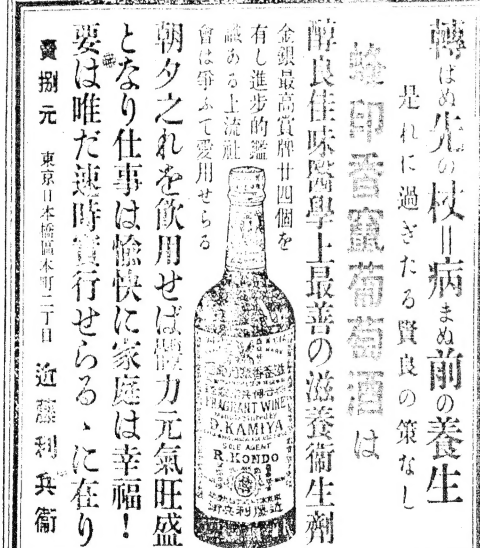 轉ばぬ先の杖＝病まぬ前の養生
是れに過ぎたる賢良の策なし
蜂印香竄葡萄酒は
醇良佳味醫學上最善の滋養衞生劑
金銀最高賞牌廿四個を
有し進步的鑑
識ある上流社
會は爭ふて愛用せらる
朝夕之れを飮用せば體力元氣旺盛
となり仕事は愉快に家庭は幸福！
要は唯だ速時實行せらるゝに在り
賣捌元 東京日本橋區本町二丁目 近藤利兵衞
FRAGRANT WINE
D. KAMIYA
SOLE AGENT
R. KONDO